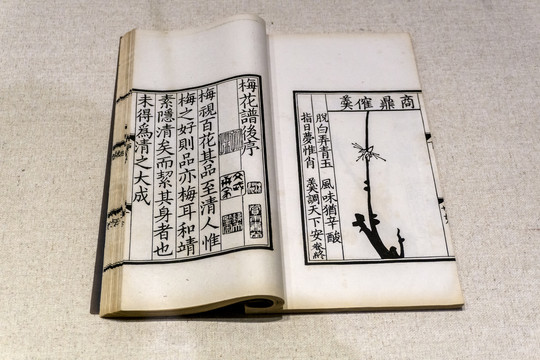 商鼎催羹
脫白弄青玉 風味猶辛酸
指日夢惟肖 羹調天下安 卷終
梅花譜後序
梅視百花其品至清人惟
梅之好則品亦梅耳和靖
素隱清矣而絜其身者也
未得爲清之大成